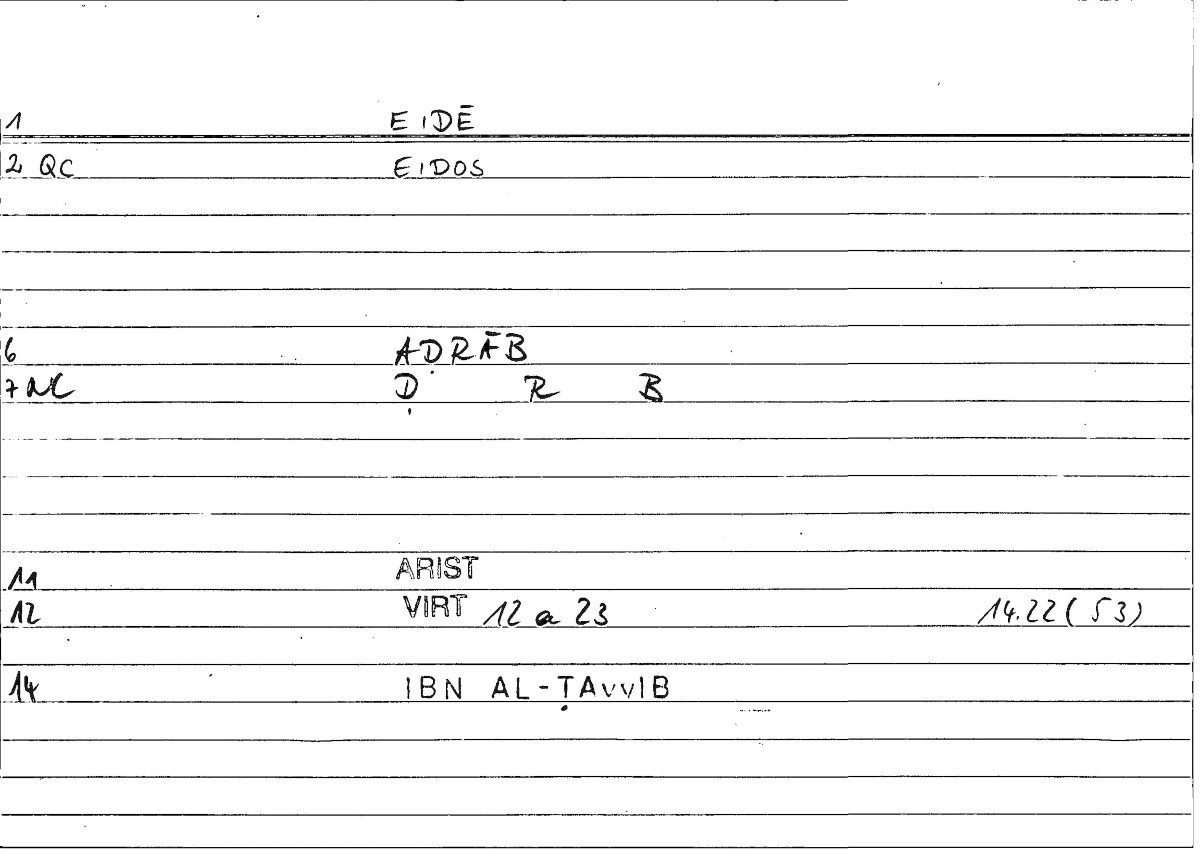 1 EIDĒ
2 QC EIDOS
6 AḌRĀB
7 NC Ḍ R B
11 ARIST
12 VIRT 12 a 23 14.22 (53)
14 IBN AL-ṬAvvIB